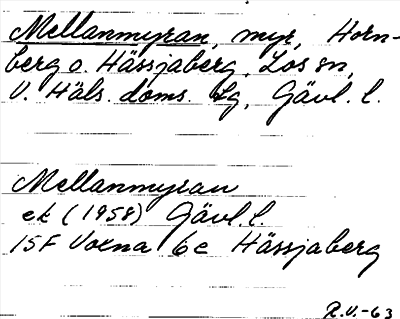 Mellanmyran, myr, Horn-
berg o. Hässjaberg, Los sn,
V. Häls. doms. Lg, Gävl. l.
Mellanmyran
ek (1958) Gävl. l.
15F Voxna 6c Hässjaberg
R.V.-63